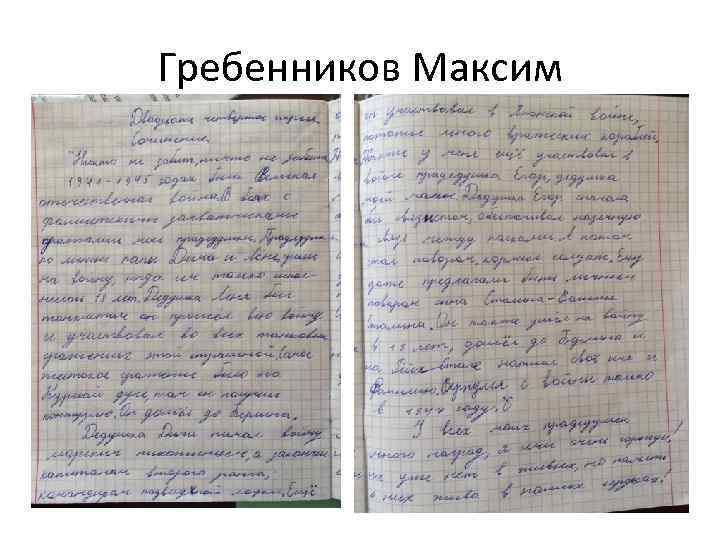 Гребенников Максим
Двадцать четвертое апреля.
Сочинение.
"Никто не забыт, ничто не забыто"
1941-1945 годах была Великая
отечественная война. В боях с
фашистскими захватчиками
сражались мои прадедушки. Прадедушки
по линии папы Дима и Лёня, ушли
на войну, когда им только испол-
нилось 18 лет. Дедушка Лёня был
танкистом он прошел всю войну
и участвовал во всех танковых
сражениях этой страшной. Самое
жестокое сражение было на
Курской дуге, там он получил
контузию. Он дошел до Берлина.
Дедушка Дима начал войну
морским пехотинцем, а закончил
капитаном второго ранга,
командиром подводной лодки. Ещё
он участвовал в Японской войне,
потопил много вражеских кораблей.
Также у меня ещё участвовал в
войне прадедушка Егор, дедушка
моей мамы. Дедушка Егор сначала
был связистом, обеспечивал надежную
связь между полками. А потом
стал поваром, кормил солдат. Ему
даже предлагали быть личным
поваром сына Сталина - Василия
Сталина. Он также ушел на войну
в 18 лет, дошёл до Берлина и
на Рейхстаге написал своё имя и
Фамилию. Вернулся с войны только
в 1947 году.
У всех моих прадедушек
много наград, я ими очень горжусь!
их уже нет в живых, но память
о них жива в наших сердцах!